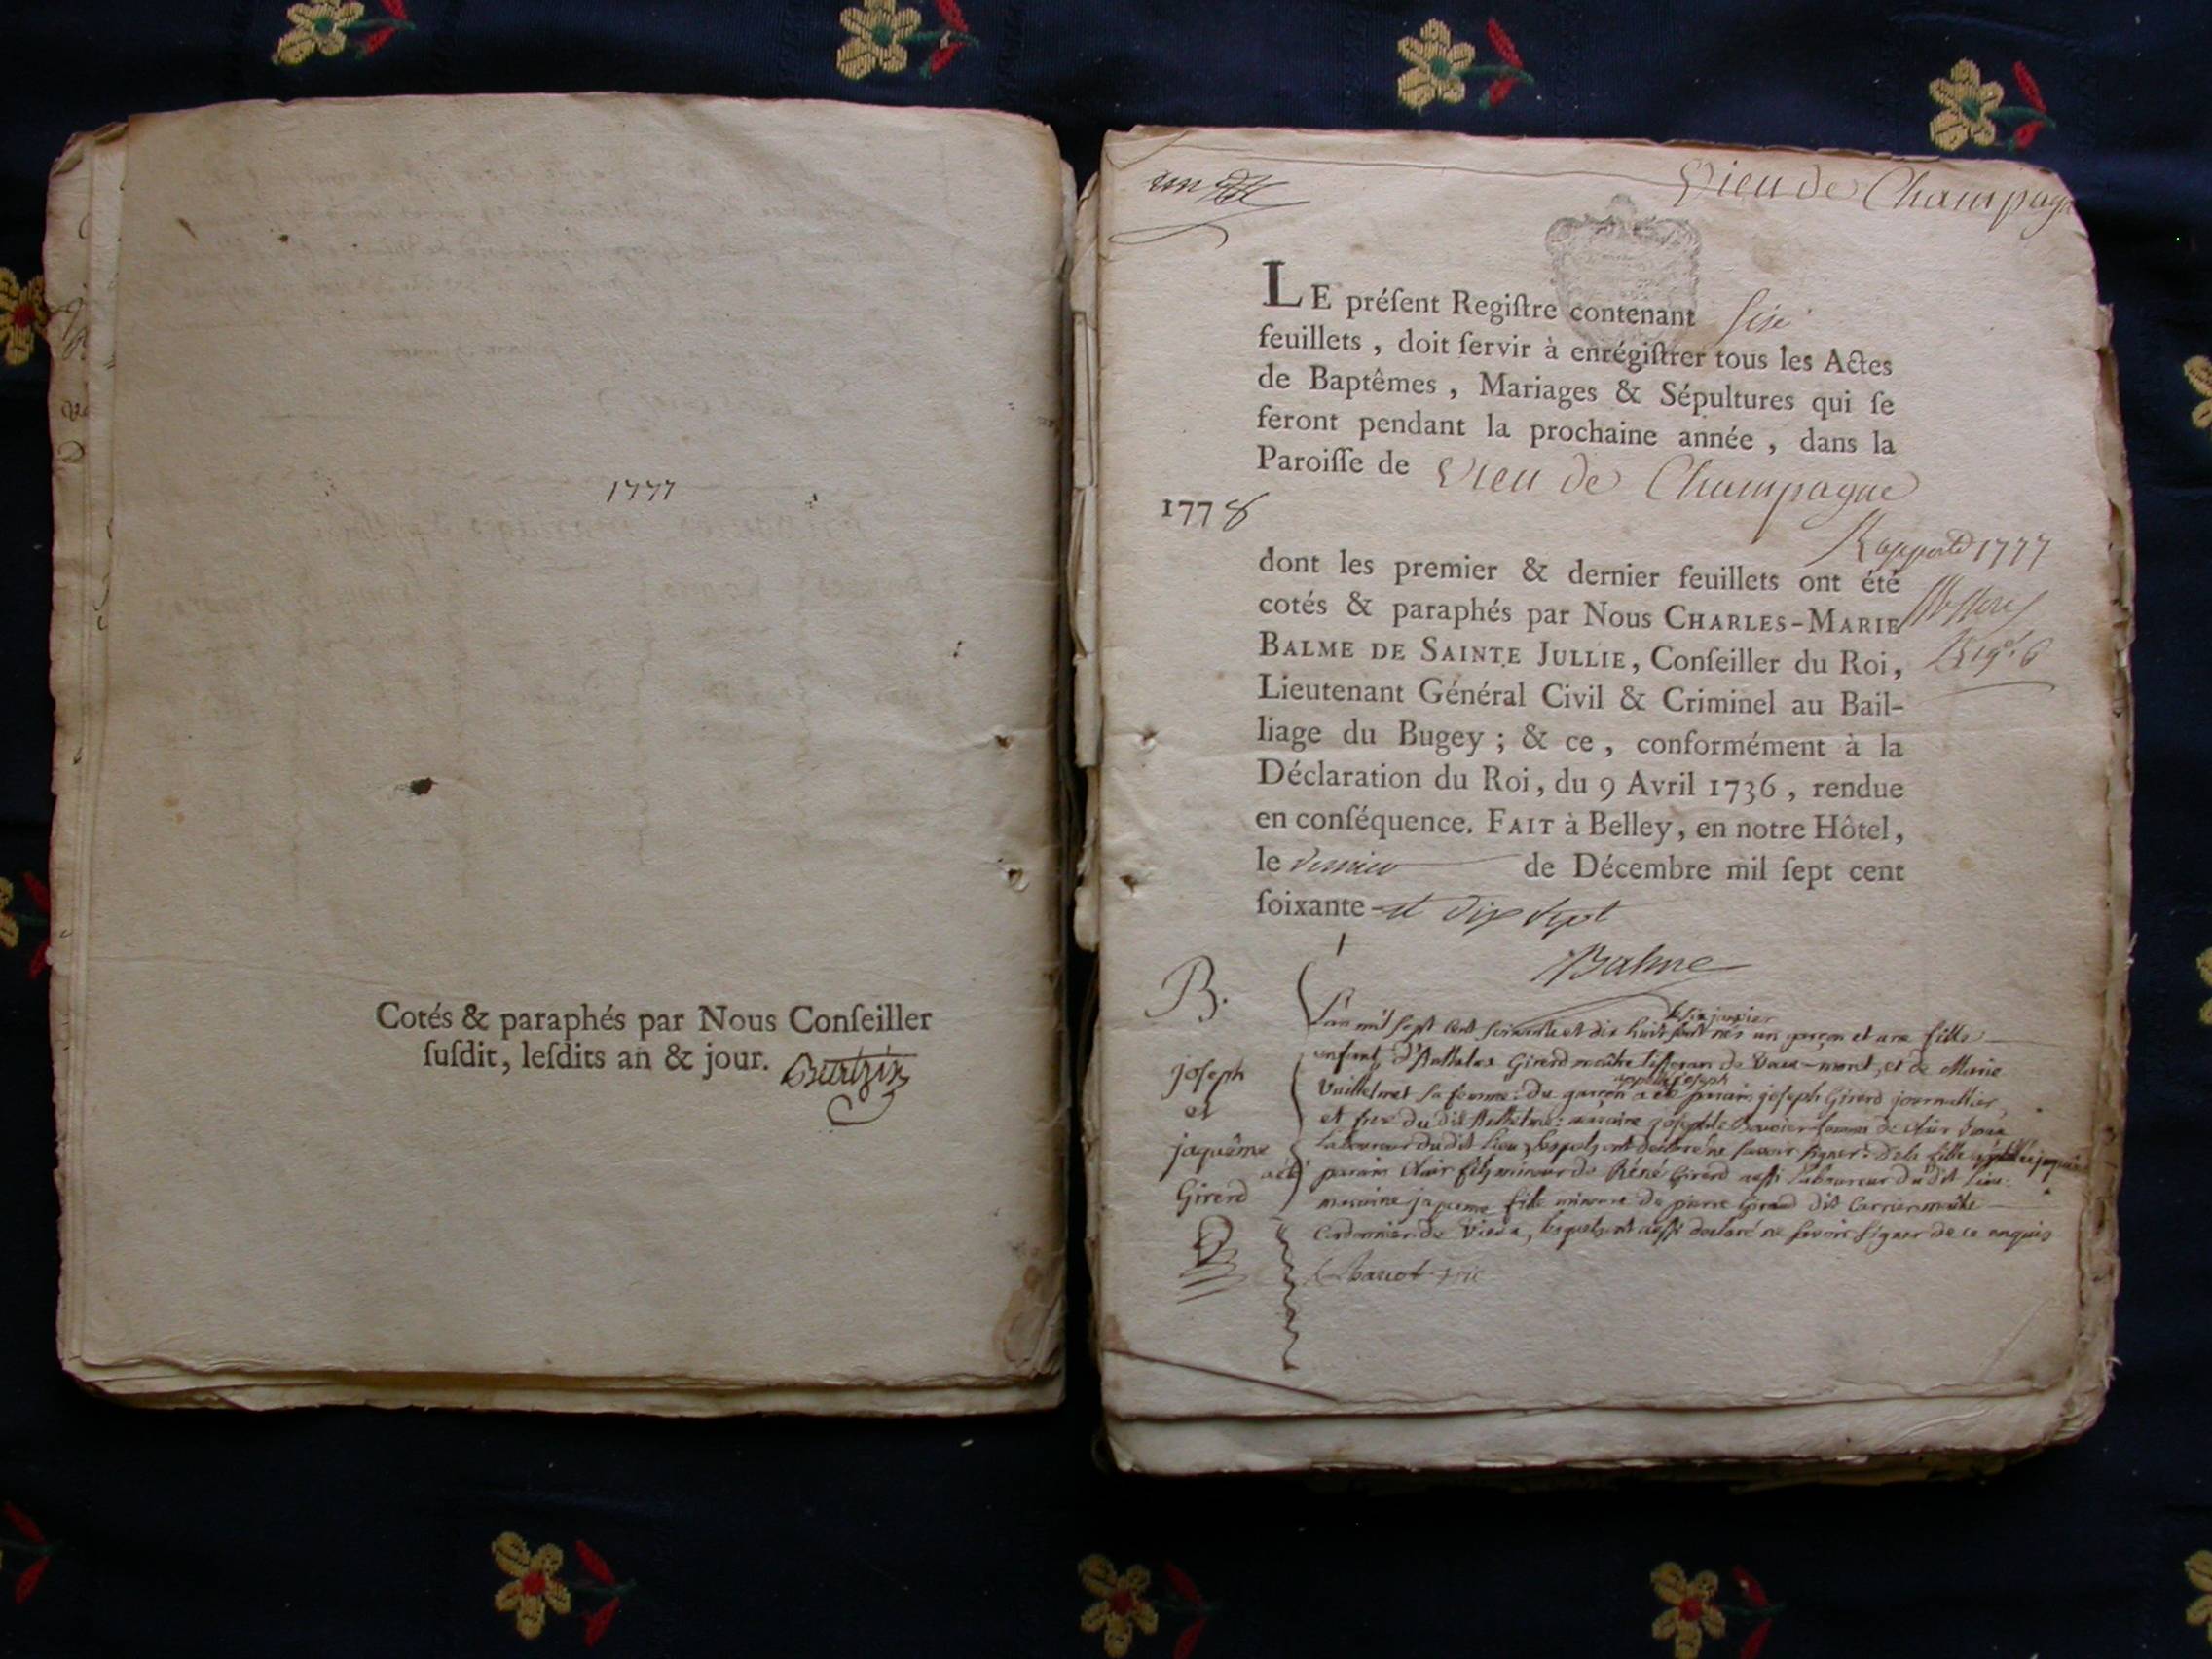 1777
Cotés & paraphés par Nous Conſeiller
ſuſdit, leſdits an & jour.
un
Vieu de Champagn
LE préſent Regiſtre contenant six
feuillets, doit ſervir à enrégiſtrer tous les Actes
de Baptêmes, Mariages & Sépultures qui ſe
feront pendant la prochaine année, dans la
Paroiſſe de Vieu de Champagne
1778
Rapporté 1777
dont les premier & dernier feuillets ont été
cotés & paraphés par Nous CHARLES-MARIE
BALME DE SAINTE JULLIE, Conſeiller du Roi,
Lieutenant Général Civil & Criminel au Bail-
liage du Bugey ; & ce, conformément à la
Déclaration du Roi, du 9 Avril 1736, rendue
en conſéquence. FAIT à Belley, en notre Hôtel,
le dernier de Décembre mil ſept cent
ſoixante et dix sept
Balme
B.
joseph
et
jaquême
Girerd
le six janvier
L'an mil sept cent soixante et dix huit sont nés un garçon et une fille
enfants d'Anthelme Girerd maître tisseran de Vaux-moret, et de Marie
sa femme: du garçon appellé joseph a été parain joseph Girerd journallier,
et frere du dit Anthelme: maraine josephte femme de
laboureur du dit lieu, lesquels ont déclaré ne savoir signer: de la fille appellée jaquême
a été parain Clair fils mineur de Réné Girerd aussi laboureur du dit lieu:
maraine jaqueme fille mineure de pierre Girerd dit maître
cordonnier de Vieu, lesquels ont aussi declaré ne savoir signer de ce enquis